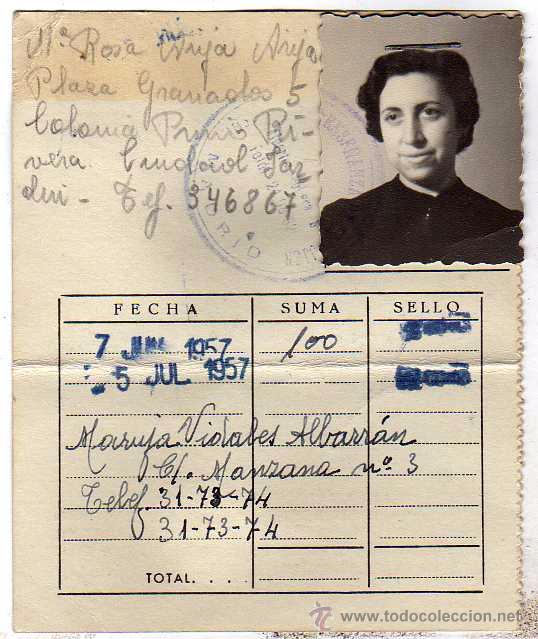 Mª Rosa Arija Arija
Plaza Granados 5
Colonia Primo Ri-
vera. Ciudad Jar-
din - Tef. 346867
MADRID
FECHA SUMA SELLO
7 JUN. 1957 100
5 JUL 1957
Maruja Vidales Albarrán
C/. Manzana nº 3
Telef. 31-73-74
31-73-74
TOTAL. . . .
www.todocoleccion.net